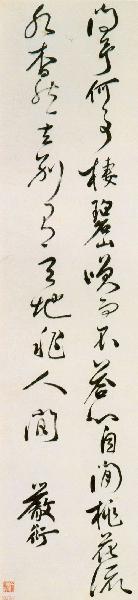 問予何事棲碧山笑而不答心自閒桃花流
水杳然去別有天地非人間
嚴衍